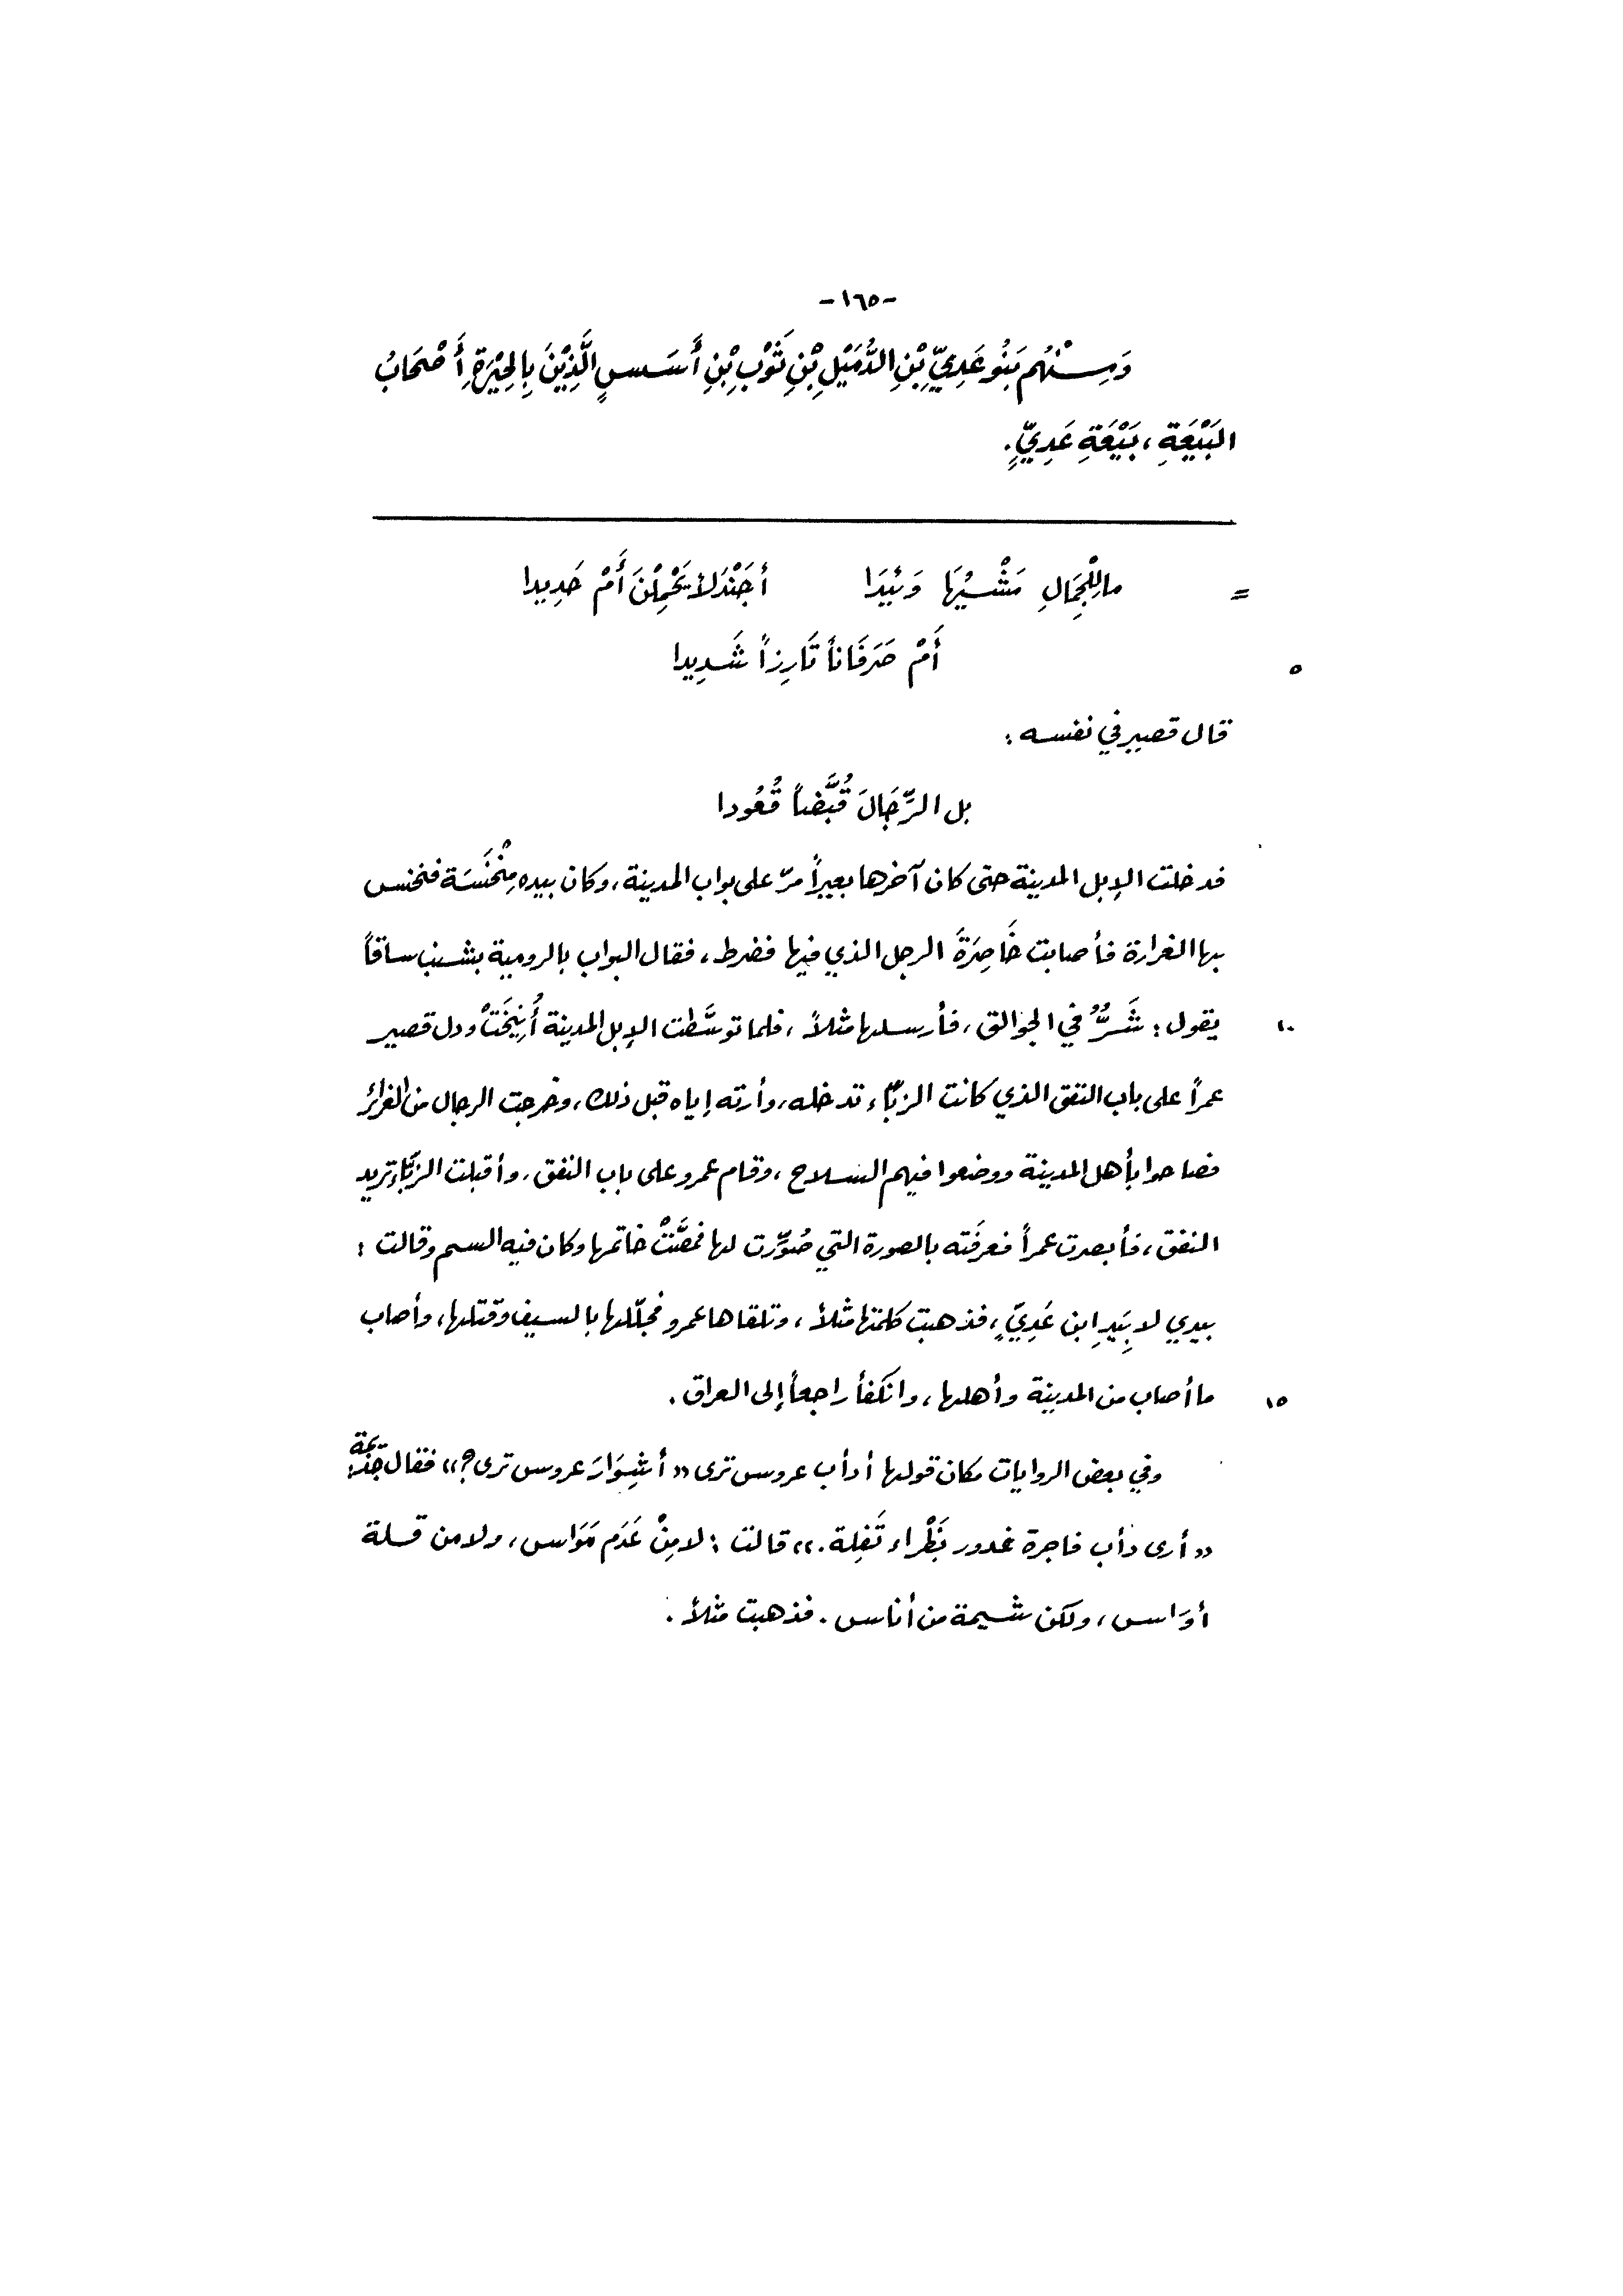 -١٦٥-
وَمِنْهُم بَنُو عَدِيِّ بْنِ الدُّمَيْلِ بْنِ ثَوْبِ بْنِ أَسَسٍ الَّذِيْنَ بِالحِيْرَةِ أَصْحَابُ
البَيْعَةِ، بَيْعَةِ عَدِيٍّ.
= ما لِلْجِمَالِ مَشْيُهَا وَئِيدَا أجَنْدَلاً يَحْمِلْنَ أَمْ حَدِيدا
٥ أَمْ صَرَفَاناً تَارِزاً شَدِيدا
قال قصير في نفسه :
بل الرِّجَالَ قُبَّضاً قُعُودا
فدخلت الإبل المدينة حتى كان آخرها بعيراً مرّ على بواب المدينة، وكان بيده مِنْخَسَة فنخس
بها الغرارة فأصابت خَاصِرَةَ الرجل الذي فيها فضرط، فقال البواب بالرومية بشنب ساقاً
١٠ يقول : شَرٌّ في الجوالق، فأرسلها مثلاً، فلما توسَّطت الإبل المدينة أُنِيخَتْ ودل قصير
عمراً على باب النفق الذي كانت الزبّاء تدخله، وأرته إياه قبل ذلك، وخرجت الرجال من الغرائر
فصاحوا بأهل المدينة ووضعوا فيهم السلاح، وقام عمرو على باب النفق، وأقبلت الزبّاء تريد
النفق، فأبصرت عمراً فعرفَته بالصورة التي صُوِّرت لها فمصَّتْ خاتمها وكان فيه السم وقالت :
بيدي لا بِيَدِ ابن عَدِيٍّ، فذهبت كلمتها مثلاً، وتلقاها عمرو فجلّلها بالسيف وقتلها، وأصاب
١٥ ما أصاب من المدينة وأهلها، وانكفأ راجعاً إلى العراق.
وفي بعض الروايات مكان قولها أدأب عروس ترى « أشِوَارَ عروس ترى؟ » فقال جَذيمة:
« أرى دأب فاجرة غدور بَظْراء تَفِلة. » قالت : لا مِنْ عَدَم مَوَاس، ولا من قلة
أوَاس، ولكن شيمة من أناس. فذهبت مثلاً.